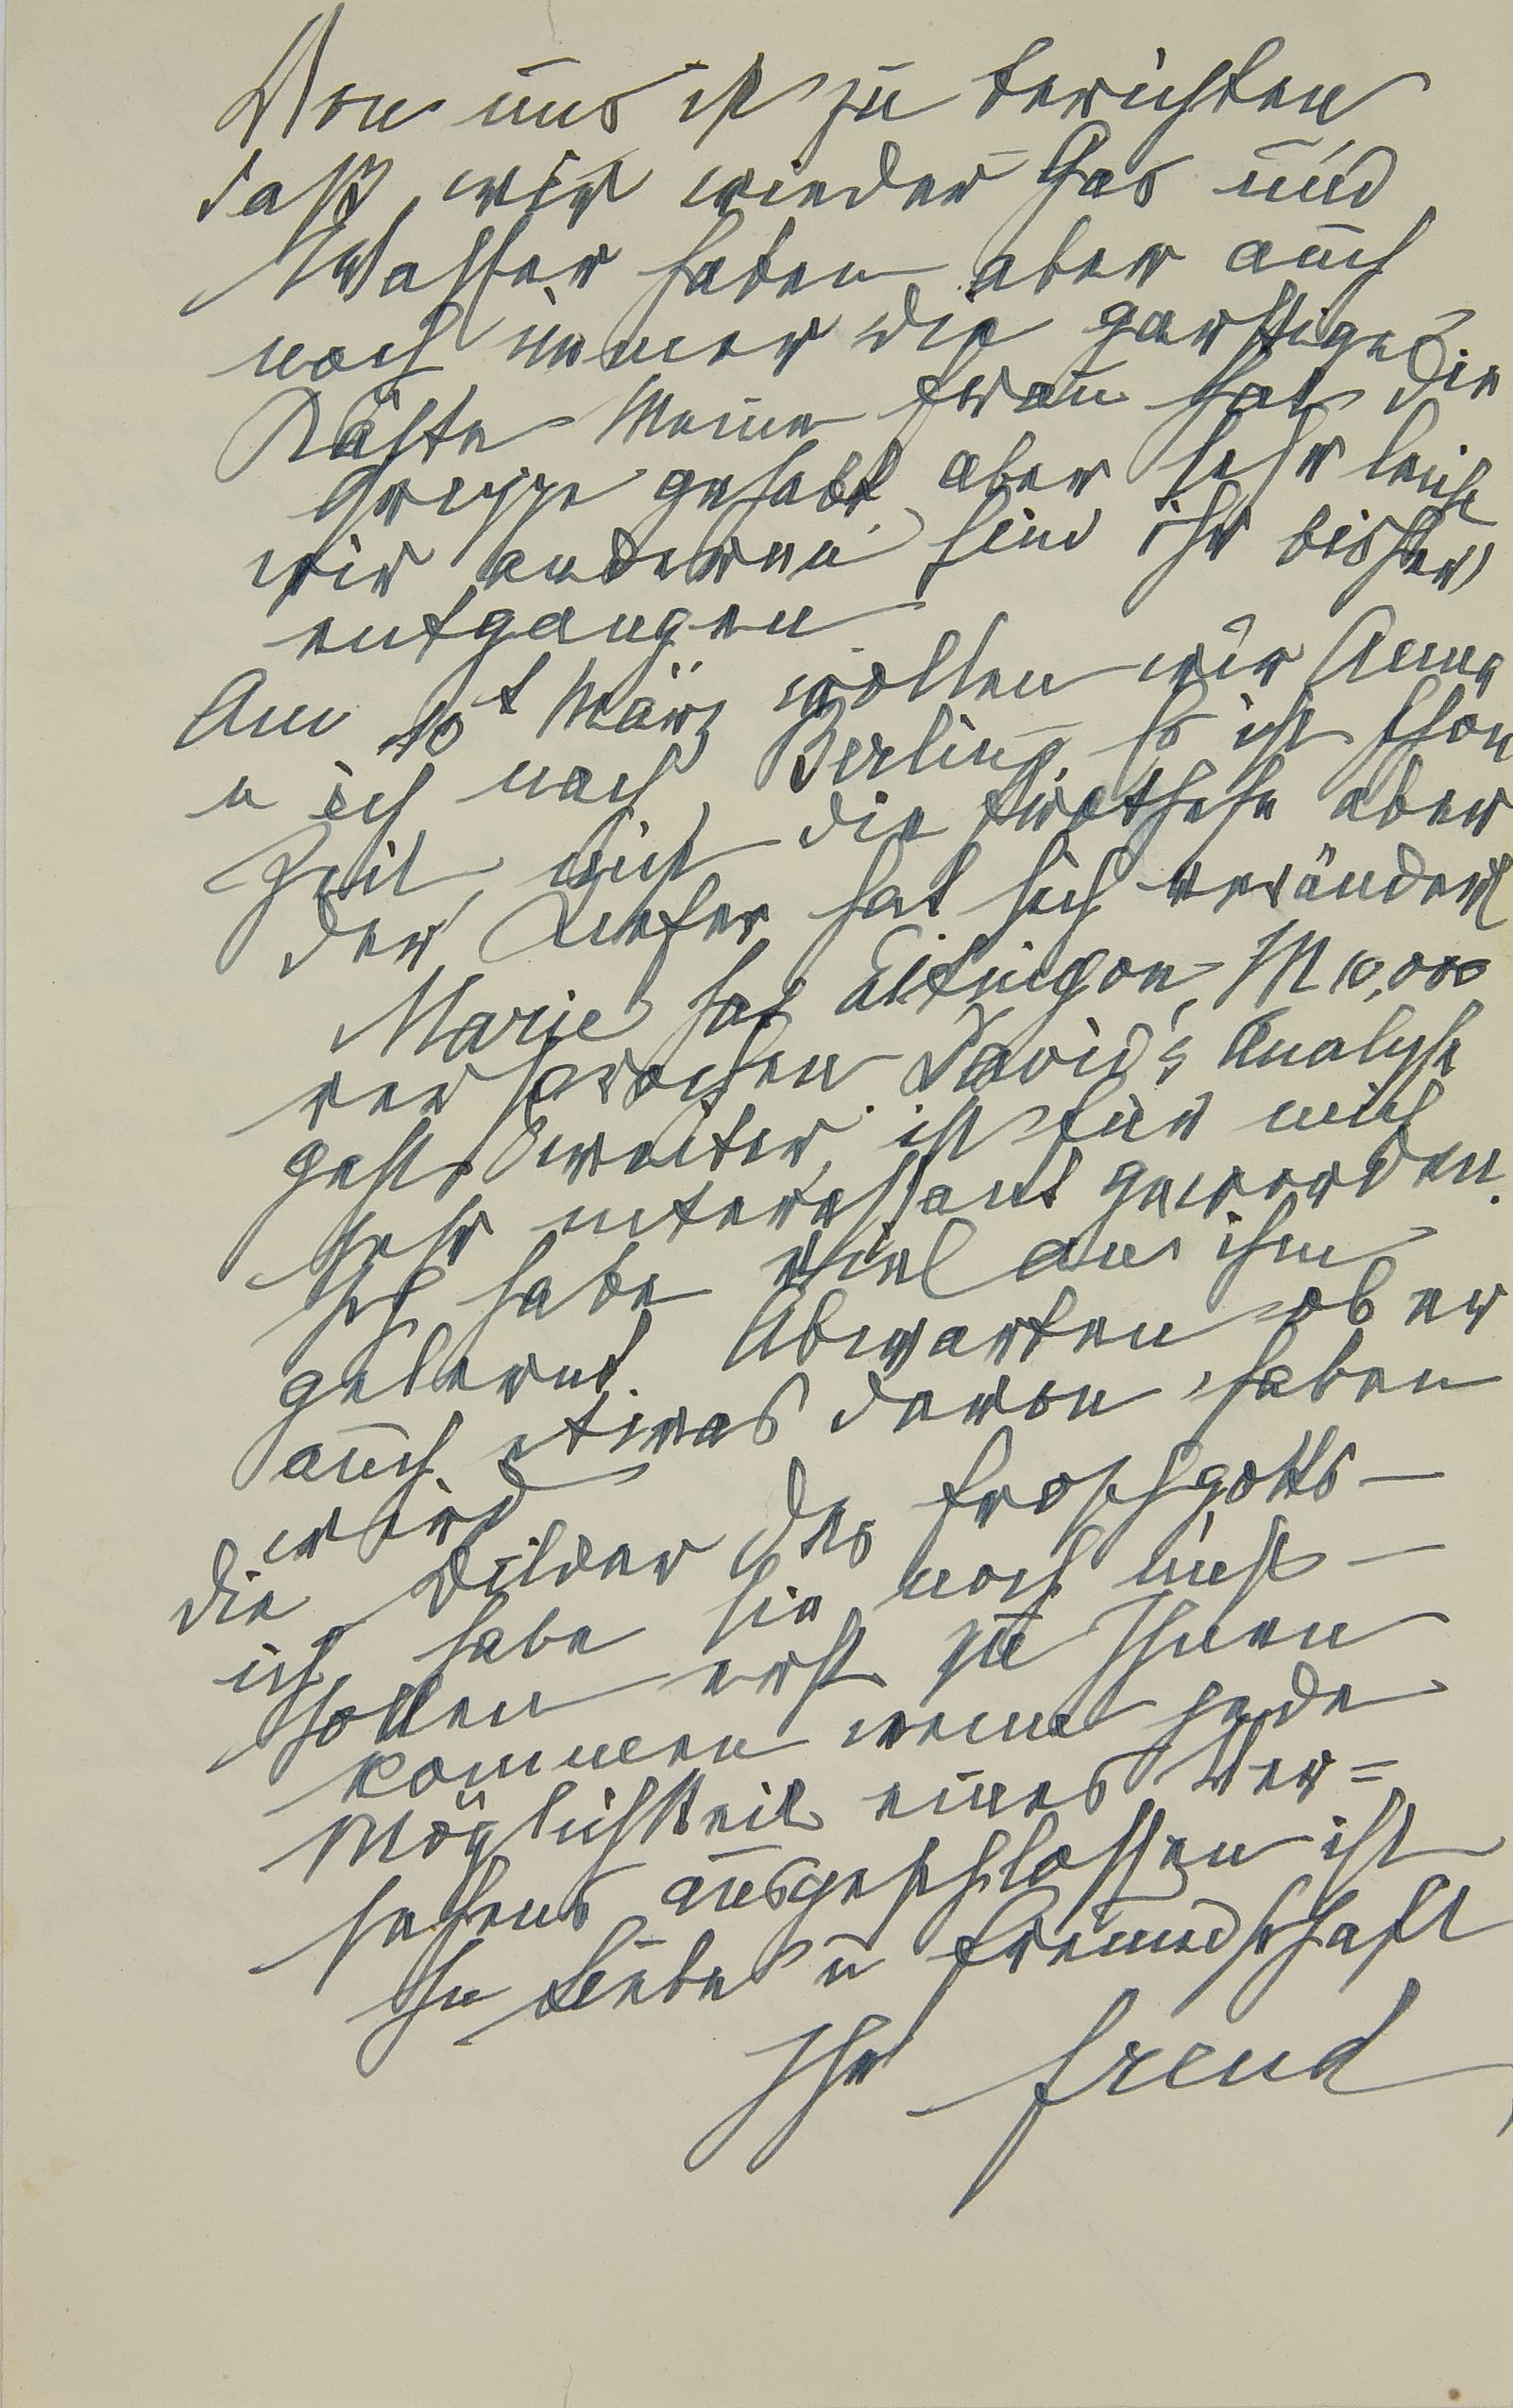 Von uns ist zu berichten
daß wir wieder Gas und
Wasser haben aber auch
noch immer die garstige
Kälte Meine Frau hat die
Grippe gehabt, aber sehr leicht
wir anderen sind ihr bisher
entgangen
Am 10t März wollen wir Anna
u ich nach Berlin. Es ist schon
Zeit, nicht die Prothese aber
der Kiefer hat sich verändert
Marie hat Eitingon M 10,000
versprochen. David's Analyse
geht weiter, ist für mich
sehr interessant geworden.
Ich habe viel an ihm
gelernt. Abwarten ob er
auch etwas davon haben
wird
Die Bilder des Froschgotts –
ich habe sie noch nicht –
sollen erst zu Ihnen
kommen wenn jede
Möglichkeit eines Ver=
sehens ausgeschlossen ist
In Liebe u Freundschaft
Ihr Freud